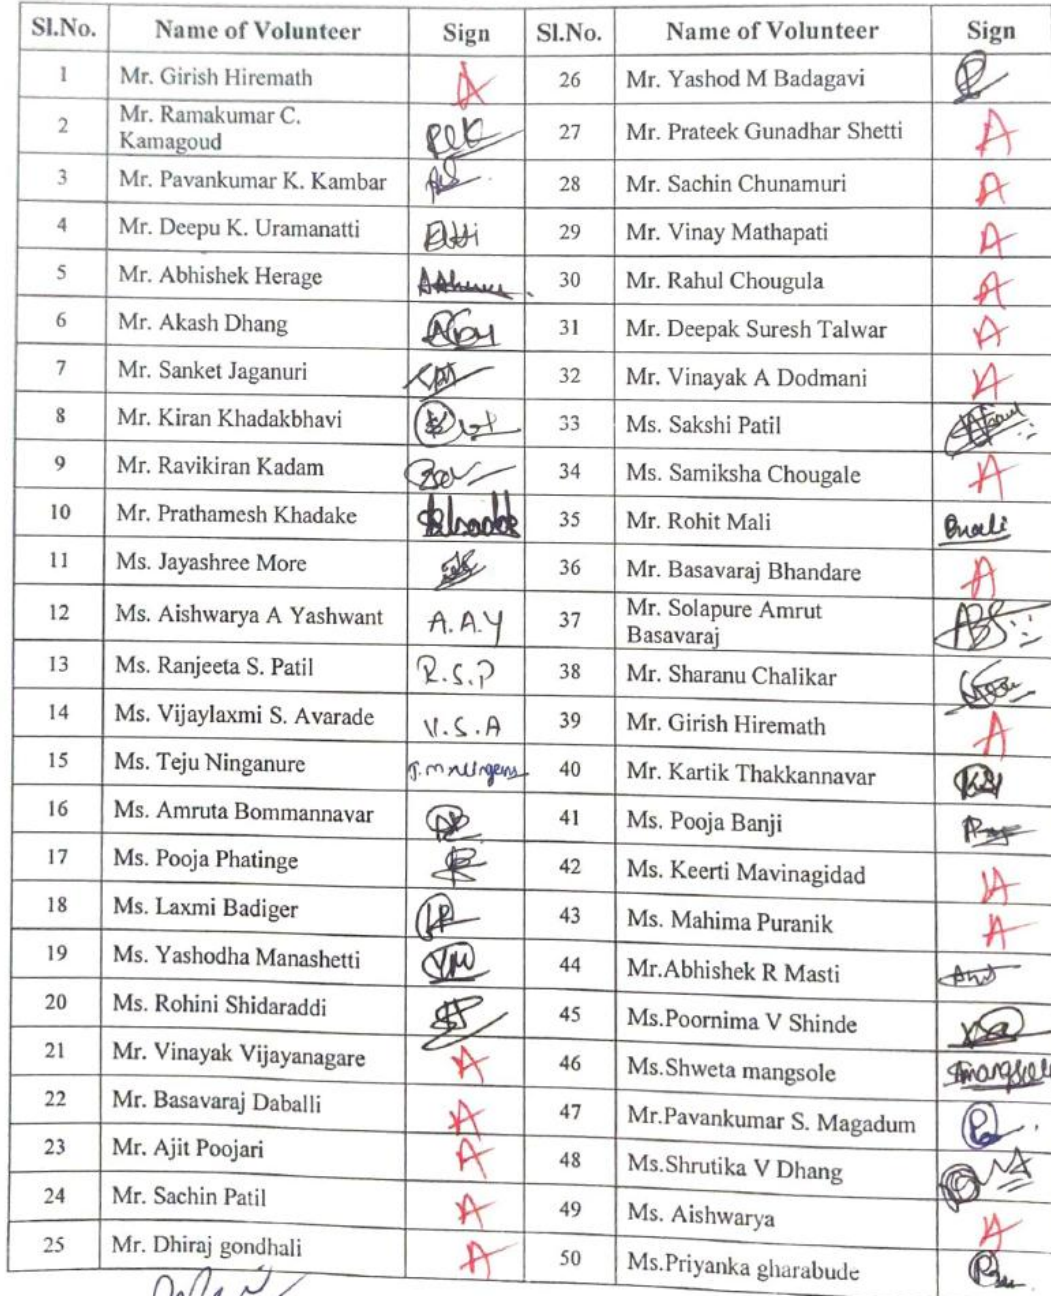 Sl.No. Name of Volunteer Sign Sl.No. Name of Volunteer Sign
1 Mr. Girish Hiremath A 26 Mr. Yashod M Badagavi
2 Mr. Ramakumar C. Kamagoud 27 Mr. Prateek Gunadhar Shetti A
3 Mr. Pavankumar K. Kambar 28 Mr. Sachin Chunamuri A
4 Mr. Deepu K. Uramanatti 29 Mr. Vinay Mathapati A
5 Mr. Abhishek Herage 30 Mr. Rahul Chougula A
6 Mr. Akash Dhang 31 Mr. Deepak Suresh Talwar A
7 Mr. Sanket Jaganuri 32 Mr. Vinayak A Dodmani A
8 Mr. Kiran Khadakbhavi 33 Ms. Sakshi Patil
9 Mr. Ravikiran Kadam 34 Ms. Samiksha Chougale A
10 Mr. Prathamesh Khadake 35 Mr. Rohit Mali
11 Ms. Jayashree More 36 Mr. Basavaraj Bhandare A
12 Ms. Aishwarya A Yashwant A.A.Y 37 Mr. Solapure Amrut Basavaraj
13 Ms. Ranjeeta S. Patil R.S.P 38 Mr. Sharanu Chalikar
14 Ms. Vijaylaxmi S. Avarade V.S.A 39 Mr. Girish Hiremath A
15 Ms. Teju Ninganure 40 Mr. Kartik Thakkannavar
16 Ms. Amruta Bommannavar 41 Ms. Pooja Banji
17 Ms. Pooja Phatinge 42 Ms. Keerti Mavinagidad A
18 Ms. Laxmi Badiger 43 Ms. Mahima Puranik A
19 Ms. Yashodha Manashetti 44 Mr.Abhishek R Masti
20 Ms. Rohini Shidaraddi 45 Ms.Poornima V Shinde
21 Mr. Vinayak Vijayanagare A 46 Ms.Shweta mangsole
22 Mr. Basavaraj Daballi A 47 Mr.Pavankumar S. Magadum
23 Mr. Ajit Poojari A 48 Ms.Shrutika V Dhang
24 Mr. Sachin Patil A 49 Ms. Aishwarya A
25 Mr. Dhiraj gondhali A 50 Ms.Priyanka gharabude